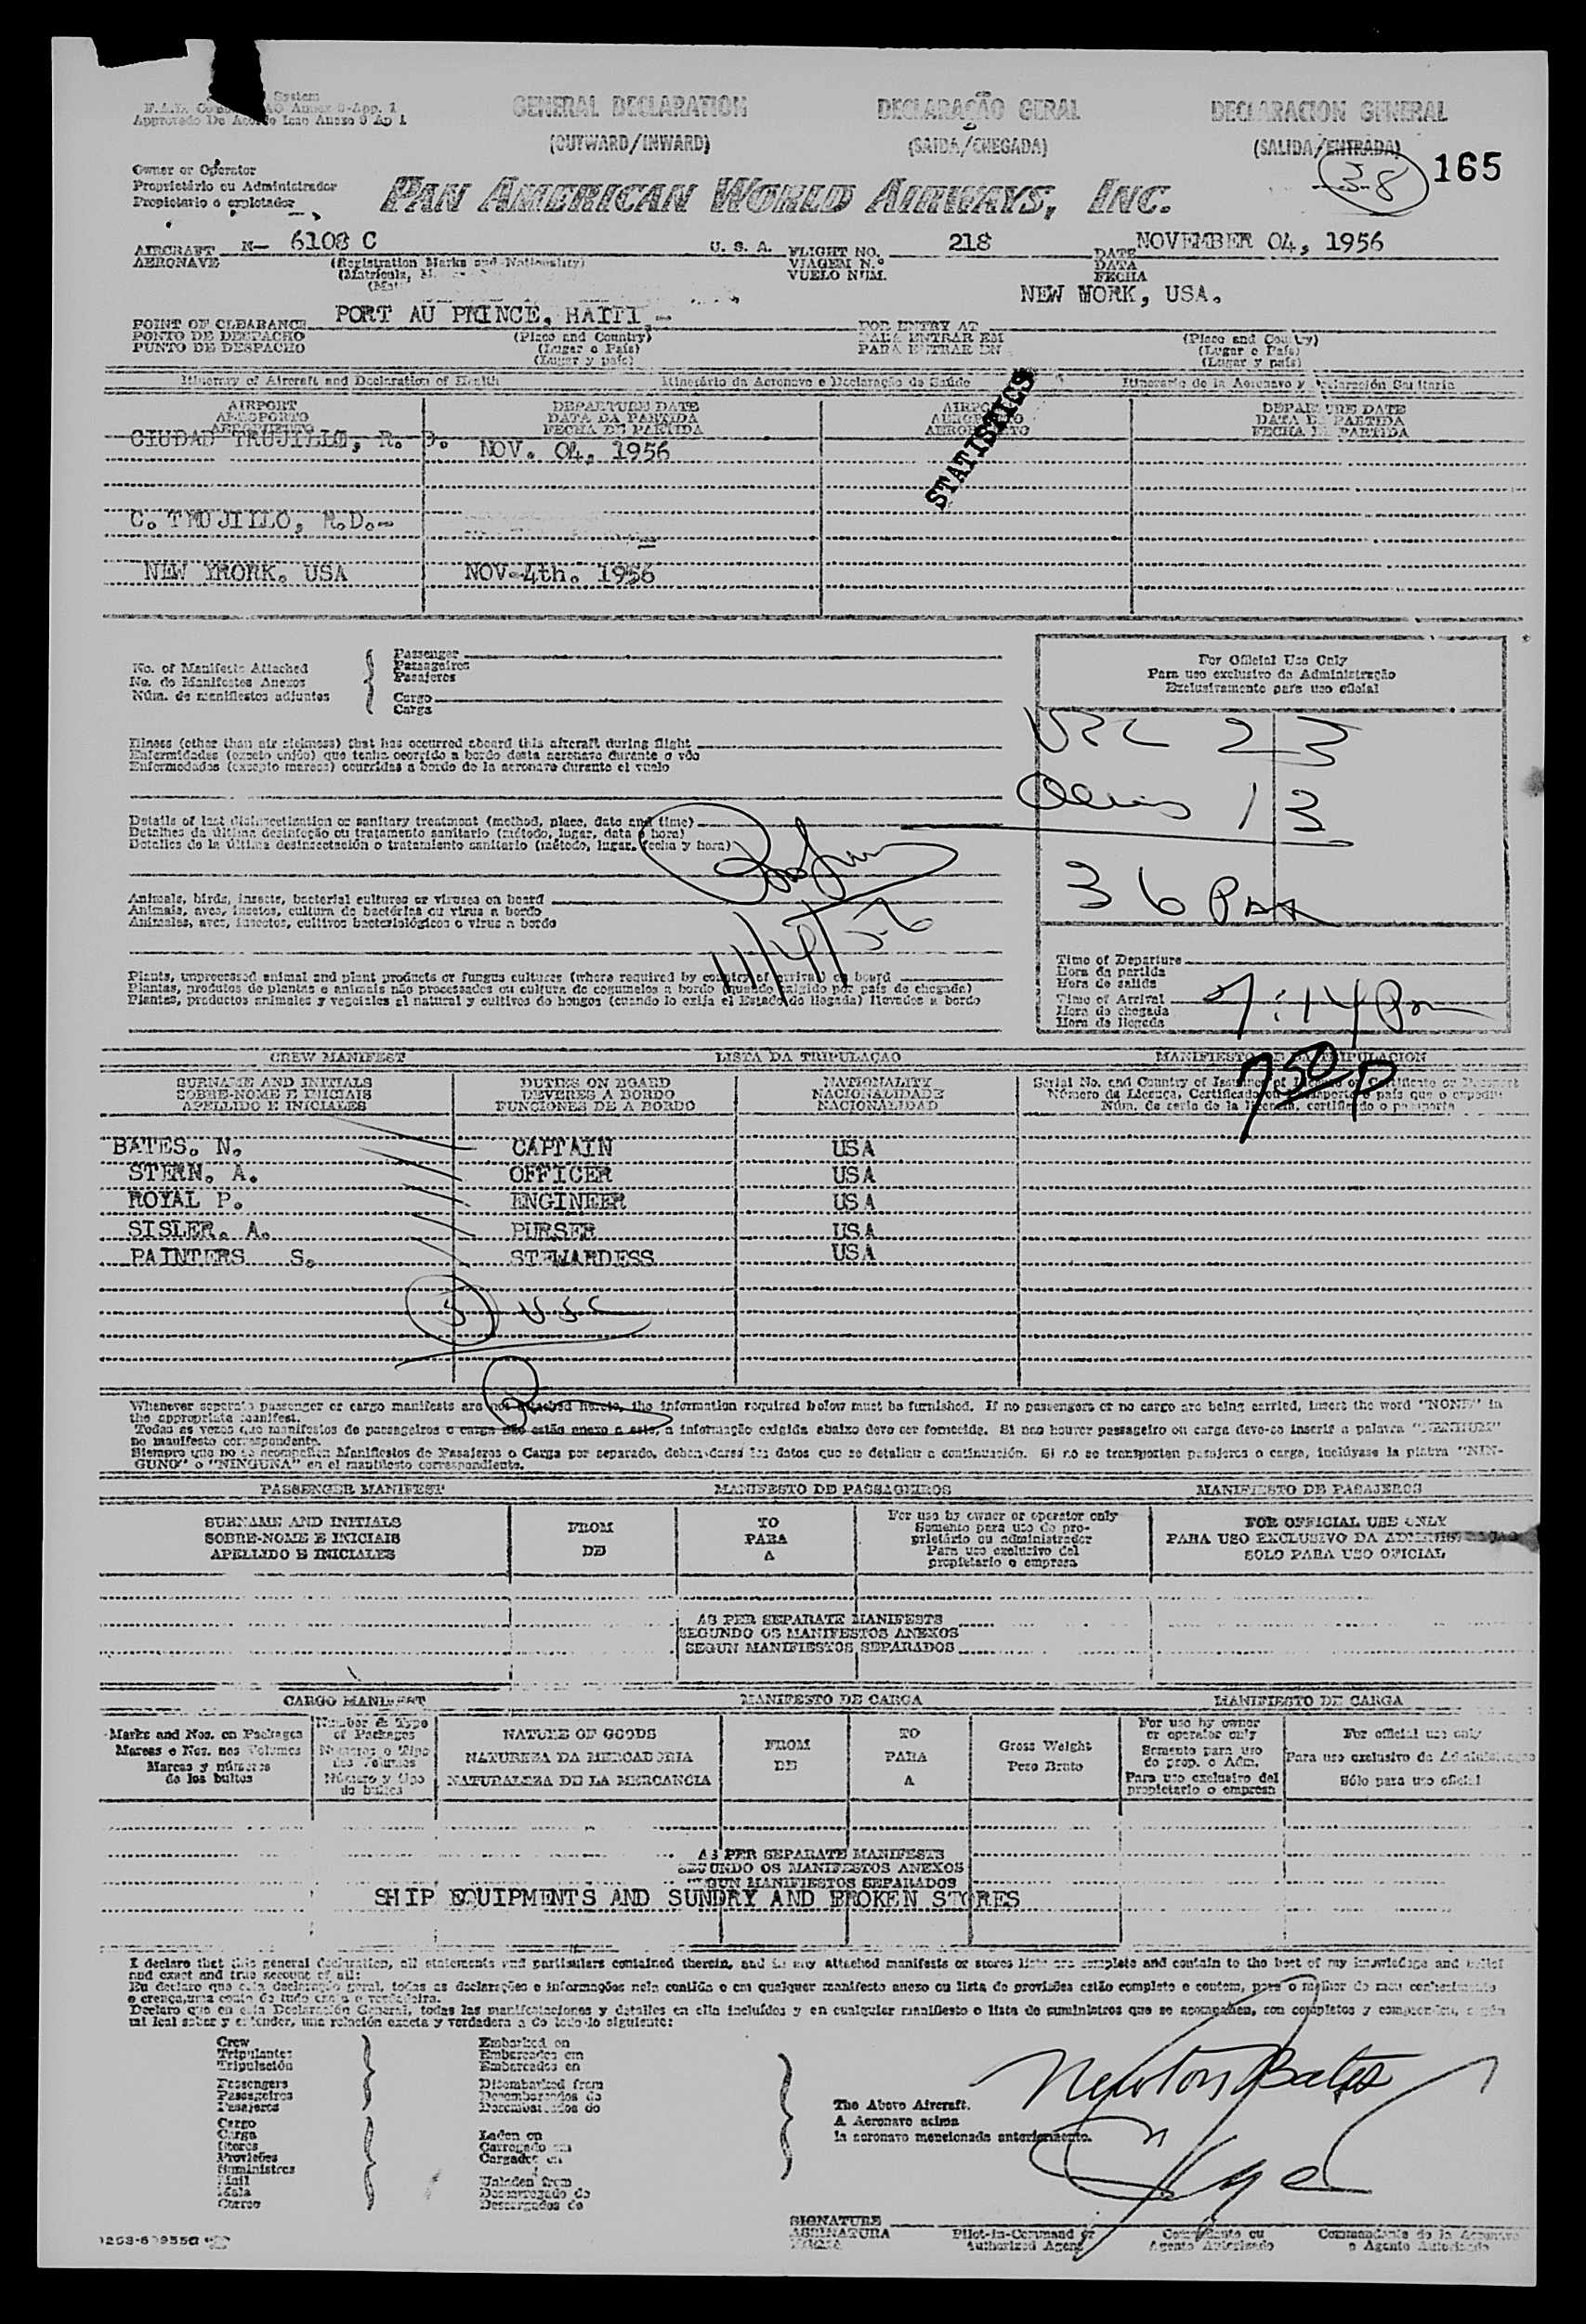 System
Annex 9-App. 1
Approvado De Acordo Icao Anexo 9 Ap 1
GENERAL DECLARATION
(OUTWARD/INWARD)
DECLARAÇÃO GERAL
(SAIDA/CHEGADA)
DECLARACION GENERAL
(SALIDA/ENTRADA)
38
165
Owner or Operator
Proprietário ou Administrador
Propietario o explotador
PAN AMERICAN WORLD AIRWAYS, INC.
AIRCRAFT N- 6108 C U. S. A. FLIGHT NO. 218 DATE NOVEMBER 04, 1956
AERONAVE (Registration Marks and Nationality) VIAGEM N.º DATA
(Matrícula, VUELO NUM. FECHA
PORT AU PRINCE, HAITI.- NEW WORK, USA.
POINT OF CLEARANCE (Place and Country) FOR ENTRY AT (Place and Country)
PONTO DE DESPACHO (Lugar e País) PARA ENTRAR EM (Lugar e País)
PUNTO DE DESPACHO (Lugar y país) PARA ENTRAR EN (Lugar y país)
Itinerary of Aircraft and Declaration of Health Itinerário da Aeronave e Declaração de Saúde Itinerario de la Aeronave y Declaración Sanitaria
AIRPORT DEPARTURE DATE AIRPORT DEPARTURE DATE
AEROPORTO DATA DA PARTIDA AEROPORTO DATA DA PARTIDA
AEROPUERTO FECHA DE PARTIDA AEROPUERTO FECHA DE PARTIDA
CIUDAD TRUJILLO, R. D. NOV. 04, 1956
STATISTICS
C. TRUJILLO, R.D.-
NEW YRORK. USA NOV-4th. 1956
No. of Manifests Attached
No. de Manifestos Anexos
Núm. de manifiestos adjuntos
Passenger
Passageiros
Pasajeros
Cargo
Carga
For Official Use Only
Para uso exclusivo da Administração
Exclusivamente para uso oficial
USC 23
Aliens 13
36 Pax
Illness (other than air sickness) that has occurred aboard this aircraft during flight
Enfermidades (exceto enjôo) que tenha ocorrido a bordo desta aeronave durante o vôo
Enfermedades (excepto mareos) ocurridas a bordo de la aeronave durante el vuelo
Details of last disinsectization or sanitary treatment (method, place, date and time)
Detalhes da última desinfeção ou tratamento sanitario (método, lugar, data e hora)
Detalles de la última desinsectación o tratamiento sanitario (método, lugar, fecha y hora)
Animals, birds, insects, bacterial cultures or viruses on board
Animais, aves, insetos, cultura de bactérias ou virus a bordo
Animales, aves, insectos, cultivos bacteriológicos o virus a bordo
11/4/56
Plants, unprocessed animal and plant products or fungus cultures (where required by country of arrival) on board
Plantas, produtos de plantas e animais não processados ou cultura de cogumelos a bordo (quando exigido por país de chegada)
Plantas, productos animales y vegetales al natural y cultivos de hongos (cuando lo exija el Estado de llegada) llevados a bordo
Time of Departure
Hora da partida
Hora de salida
Time of Arrival 7:14 Pm
Hora de chegada
Hora de llegada
750 P
CREW MANIFEST LISTA DA TRIPULAÇAO MANIFIESTO DE LA TRIPULACION
SURNAME AND INITIALS DUTIES ON BOARD NATIONALITY Serial No. and Country of Issuance of Licence or Certificate or Passport
SOBRE-NOME E INICIAIS DEVERES A BORDO NACIONALIDADE Número da Licença, Certificado ou Passaporte e país que o expediu
APELLIDO E INICIALES FUNCIONES DE A BORDO NACIONALIDAD Núm. de serie de la licencia, certificado o pasaporte
BATES. N. CAPTAIN USA
STERN. A. OFFICER USA
ROYAL P. ENGINEER USA
SISLER. A. PURSER USA
PAINTERS S. STEWARDESS USA
5 USC
Whenever separate passenger or cargo manifests are not attached hereto, the information required below must be furnished. If no passengers or no cargo are being carried, insert the word "NONE" in
the appropriate manifest.
Todas as vezes que manifestos de passageiros e carga não estão anexo a este, a informação exigida abaixo deve ser fornecida. Si nao houver passageiro ou carga deve-se inserir a palavra "NENHUM"
no manifesto correspondente.
Siempre que no se acompañen Manifiestos de Pasajeros o Carga por separado, deben darse los datos que se detallan a continuación. Si no se transporten pasajeros o carga, inclúyase la palabra "NIN-
GUNO" o "NINGUNA" en el manifiesto correspondiente.
PASSENGER MANIFEST MANIFESTO DE PASSAGEIROS MANIFIESTO DE PASAJEROS
SURNAME AND INITIALS FROM TO For use by owner or operator only FOR OFFICIAL USE ONLY
SOBRE-NOME E INICIAIS DE PARA Somente para uso do pro-
prietário ou administrador PARA USO EXCLUSIVO DA ADMINISTRAÇAO
APELLIDO E INICIALES A Para uso exclusivo del
propietario o empresa SOLO PARA USO OFICIAL
AS PER SEPARATE MANIFESTS
SEGUNDO OS MANIFESTOS ANEXOS
SEGUN MANIFIESTOS SEPARADOS
CARGO MANIFEST MANIFESTO DE CARGA MANIFIESTO DE CARGA
Marks and Nos. on Packages
Marcas e Nos. nos Volumes
Marcas y números
de los bultos
Number & Type
of Packages
Número e Tipo
dos Volumes
Número y tipo
de bultos
NATURE OF GOODS
NATUREZA DA MERCADORIA
NATURALEZA DE LA MERCANCIA
FROM
DE
TO
PARA
A
Gross Weight
Peso Bruto
For use by owner
or operator only
Somente para uso
do prop. o Adm.
Para uso exclusivo del
propietario o empresa
For official use only
Para uso exclusivo da Administraçao
Sólo para uso oficial
AS PER SEPARATE MANIFESTS
SEGUNDO OS MANIFESTOS ANEXOS
SEGUN MANIFIESTOS SEPARADOS
SHIP EQUIPMENTS AND SUNDRY AND BROKEN STORES
I declare that this general declaration, all statements and particulars contained therein, and in any attached manifests or stores lists are complete and contain to the best of my knowledge and belief
and exact and true account of all:
Eu declaro que esta declaração geral, todas as declarações e informações nela contida e em qualquer manifesto anexo ou lista de provisões estão completo e contem, para o melhor do meu conhecimento
e crença, uma conta de tudo que e verdadeira.
Declaro que en esta Declaración General, todas las manifestaciones y detalles en ella incluídos y en cualquier manifiesto o lista de suministros que se acompañen, son completos y comprenden, según
mi leal saber y entender, una relación exacta y verdadera a de todo lo siguiente:
Crew
Tripulantes
Tripulación
Passengers
Passageiros
Pasajeros
Cargo
Carga
Stores
Provisões
Suministros
Mail
Mala
Correo
Embarked on
Embarcados em
Embarcados en
Disembarked from
Desembarcados do
Desembarcados de
Laden on
Carregado em
Cargados en
Unladen from
Descarregado do
Descargados de
The Above Aircraft.
A Aeronave acima
la aeronave mencionada anteriormente.
Newton Bates
SIGNATURE
ASSINATURA Pilot-in-Command or Comandante ou Commandante de la Aeronave
FIRMA Authorized Agent Agente Autorizado o Agente Autorizado